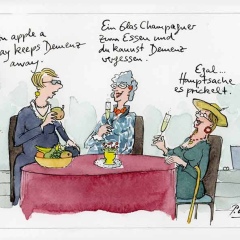 apple a
keeps Demenz
away.
Ein Glas Champagner
zum Essen und
du kannst Demenz
vergessen.
Egal...
Hauptsache
es prickelt.